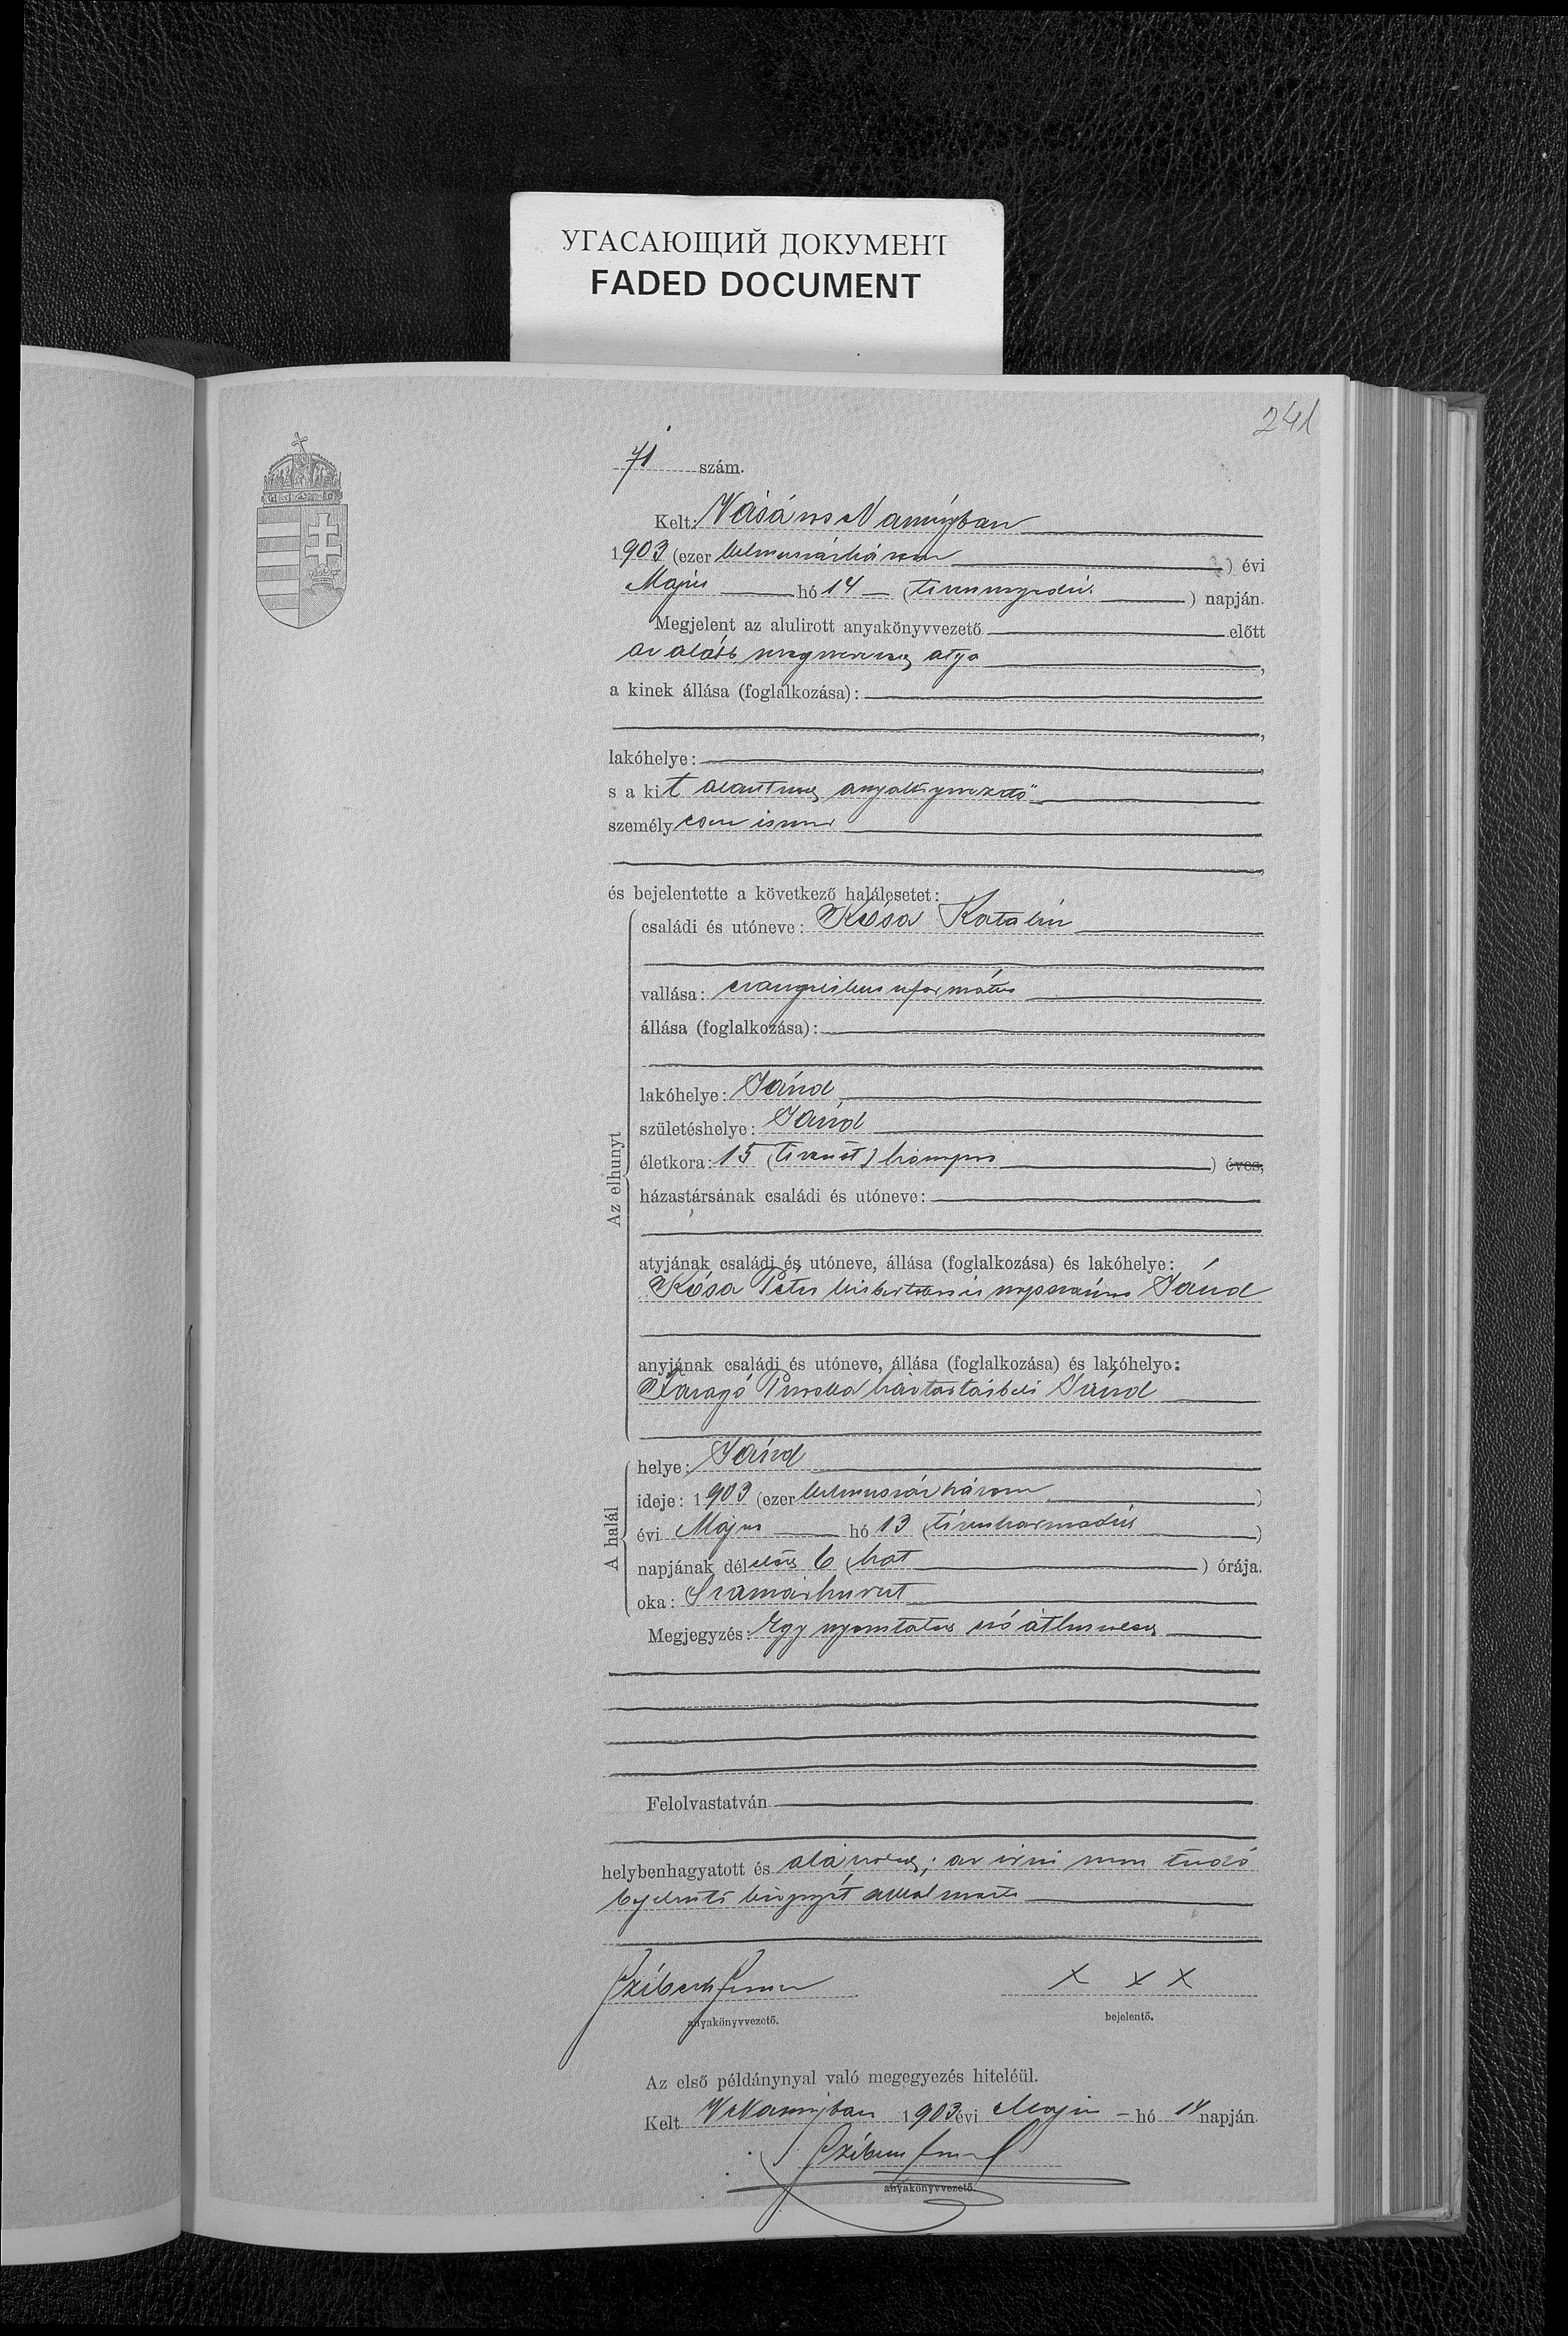 УГАСАЮЩИЙ ДОКУМЕНТ
FADED DOCUMENT
241
71 szám.
Kelt: Vásáros Naményban
1903 (ezer kilenczszázhárom) évi
Május hó 14 (tizennegyedik) napján.
Megjelent az alulirott anyakönyvvezető előtt
az alább megnevezett atya,
a kinek állása (foglalkozása):
lakóhelye:
s a kit alantirott anyakönyvvezető
személyesen ismer
és bejelentette a következő halálesetet:
Az elhunyt
családi és utóneve: Kósa Katalin
vallása: evangelikus református
állása (foglalkozása):
lakóhelye: Jánd
születéshelye: Jánd
életkora: 15 (tizenöt) hónapos ) éves,
házastársának családi és utóneve:
atyjának családi és utóneve, állása (foglalkozása) és lakóhelye:
Kósa Péter kisbirtokos és napszámos Jánd
anyjának családi és utóneve, állása (foglalkozása) és lakóhelye:
Faragó Piroska háztartásbeli Jánd
A halál
helye: Jánd
ideje: 1903 (ezer kilenczszázhárom)
évi Május hó 13 (tizenharmadik)
napjának délelőtt 6 (hat) órája.
oka: Szamárhurut
Megjegyzés: Egy nyomtatott szó áthuzva
Felolvastatván
helybenhagyatott és aláiratott; az irni nem tudó
bejelentő kézjegyét alkalmazta
X X X
anyakönyvvezető.
bejelentő.
Az első példánynyal való megegyezés hiteléül.
Kelt V.Naményban 1903 évi Május hó 14 napján.
anyakönyvvezető.